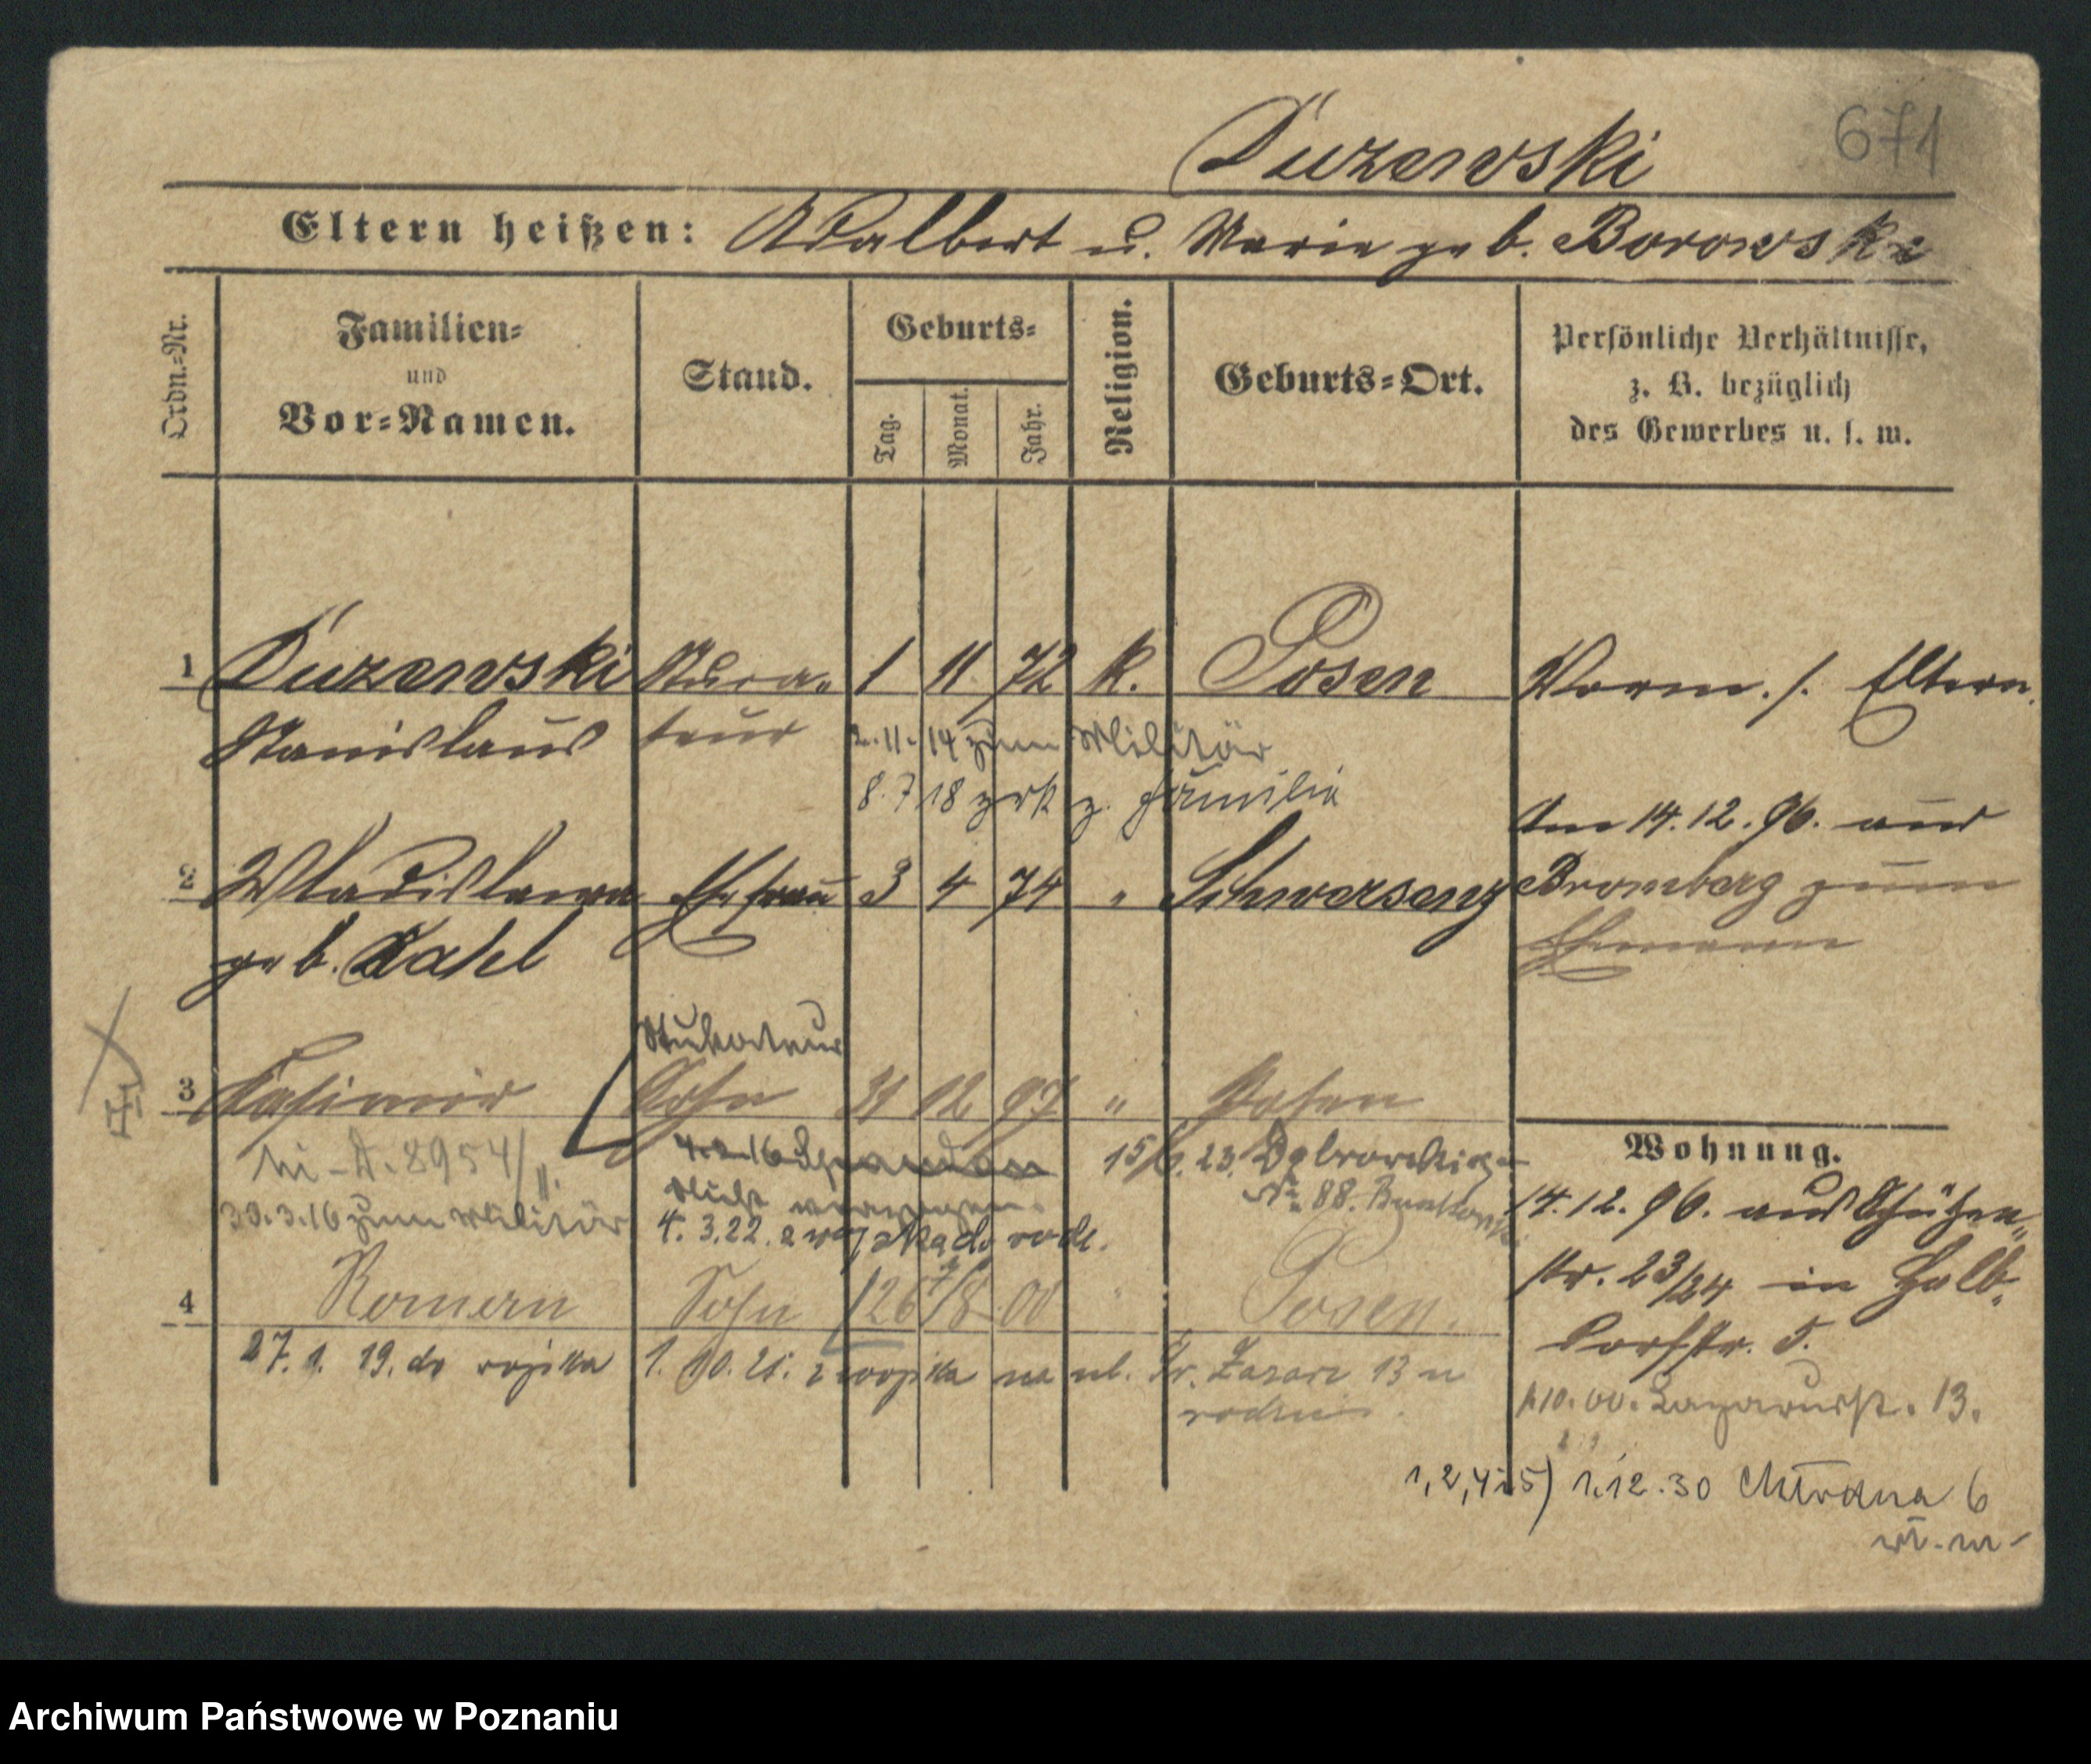 671
Duzewski
Eltern heißen: Adalbert u. Maria geb. Borowska
Ordn.=Nr.
Familien=
und
Vor=Namen.
Stand.
Geburts=
Tag.
Monat.
Jahr.
Religion.
Geburts=Ort.
Persönliche Verhältnisse,
z. B. bezüglich
des Gewerbes u. s. w.
1 Duzewski 1 11 72 k. Posen Vorm. s. Eltern
Stanislaus teur
2.11.14 zum Militär
8.7.18 zrk z. Familie
Am 14.12.96. aus
2 Wladislawa Ehefrau 3 4 74 " Schwersenz Bromberg zum
geb. Ehemann
Stukateur
3 Kasimir Sohn 31 12 97 " Posen
Wohnung.
8954/
4.2.16 Spandau
15/6. 23.
Nr 88.
nicht
30.3.16 zum Militär
4. 3.22. z wojska do rodz.
14.12.96. aus Schützen=
str. 23/24 in Halb=
4 Roman Sohn 26 7/8 00 " Posen.
dorfstr. 5.
27. 1. 19. do wojska 1. 10. 21. z wojska na ul. Łazarz 13 u
rodzin
10.00. Lazarusstr. 13.
1,2,4 i 5) 1.12.30 6